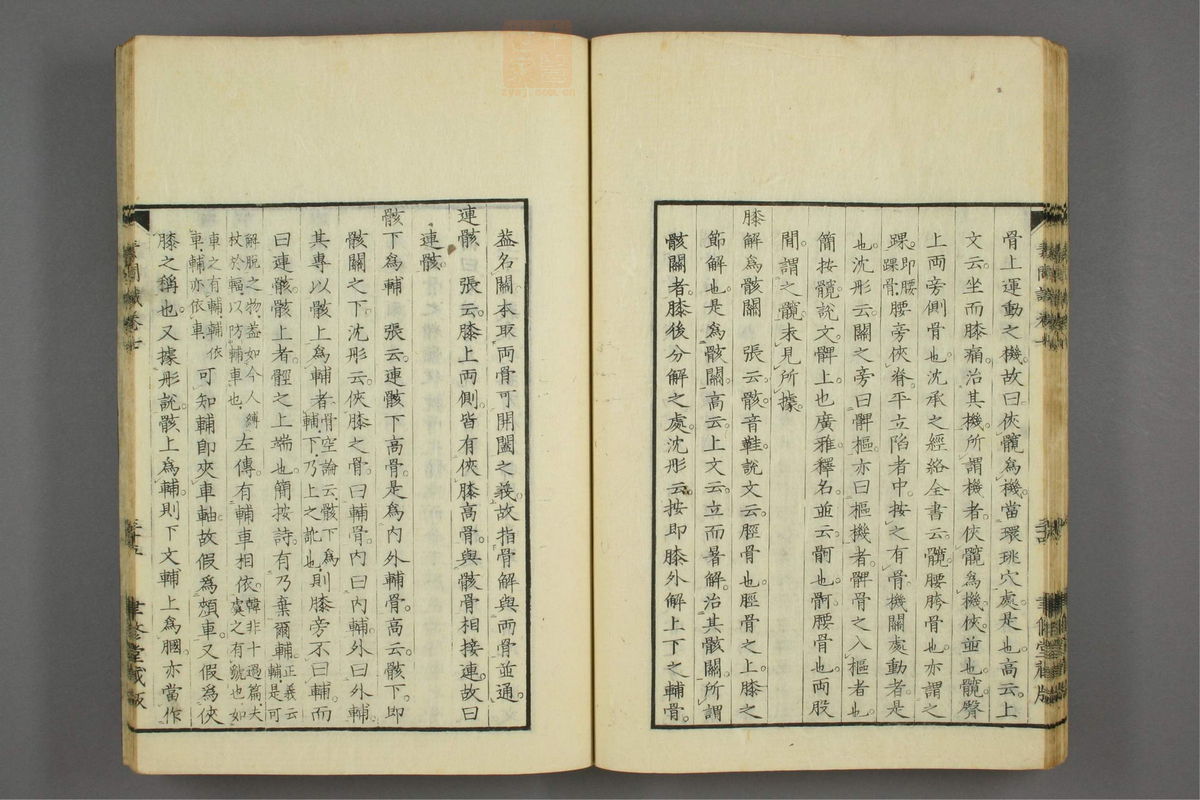 骨上運動之機。故曰俠髖爲機。當環珧穴處是也。高云。上
文云。坐而膝痛。治其機。所謂機者。俠髖爲機。俠。並也。髖。臀
上兩旁側骨也。沈承之經絡全書云。髖。腰胯骨也。亦謂之
踝。卽腰
踝骨。腰旁俠脊。平立陷者中。按之有骨。機關處動者是
也。沈彤云。關之旁曰髀樞。亦曰樞機者。髀骨之入樞者也。
簡按髖說文。髀上也。廣雅釋名。並云。䯊也。䯊。腰骨也。兩股
間。謂之髖。未見所據。
膝解爲骸關 張云。骸。音鞋。說文云。脛骨也。脛骨之上。膝之
節解也。是爲骸關。高云。上文云。立而暑解。治其骸關。所謂
骸關者。膝後分解之處。沈彤云。按即膝外解上下之輔骨。
蓋名關本取兩骨可開闔之義。故指骨解與兩骨並通。
連骸 張云。膝上兩側。皆有俠膝高骨。與骸骨相接連。故曰
連骸。
骸下爲輔 張云。連骸下高骨。是爲內外輔骨。高云。骸下。即
骸關之下。沈彤云。俠膝之骨曰輔骨。內曰內輔。外曰外輔
其專以骸上爲輔者。骨空論云。骸下爲
輔。下。乃上之訛也。則膝旁不曰輔而
曰連骸。骸上者。脛之上端也。簡按詩有乃棄爾輔。正義云
輔。是可
解脫之物。蓋如今人縛
杖於輻以防輔車也。左傳。有輔車相依。韓非十過篇。夫
虞之有虢也。如
車之有輔。輔依
車。車亦依輔。可知輔卽夾車軸。故假爲頰車。又假爲俠
膝之稱也。又據彤說。骸上爲輔。則下文輔上爲膕。亦當作